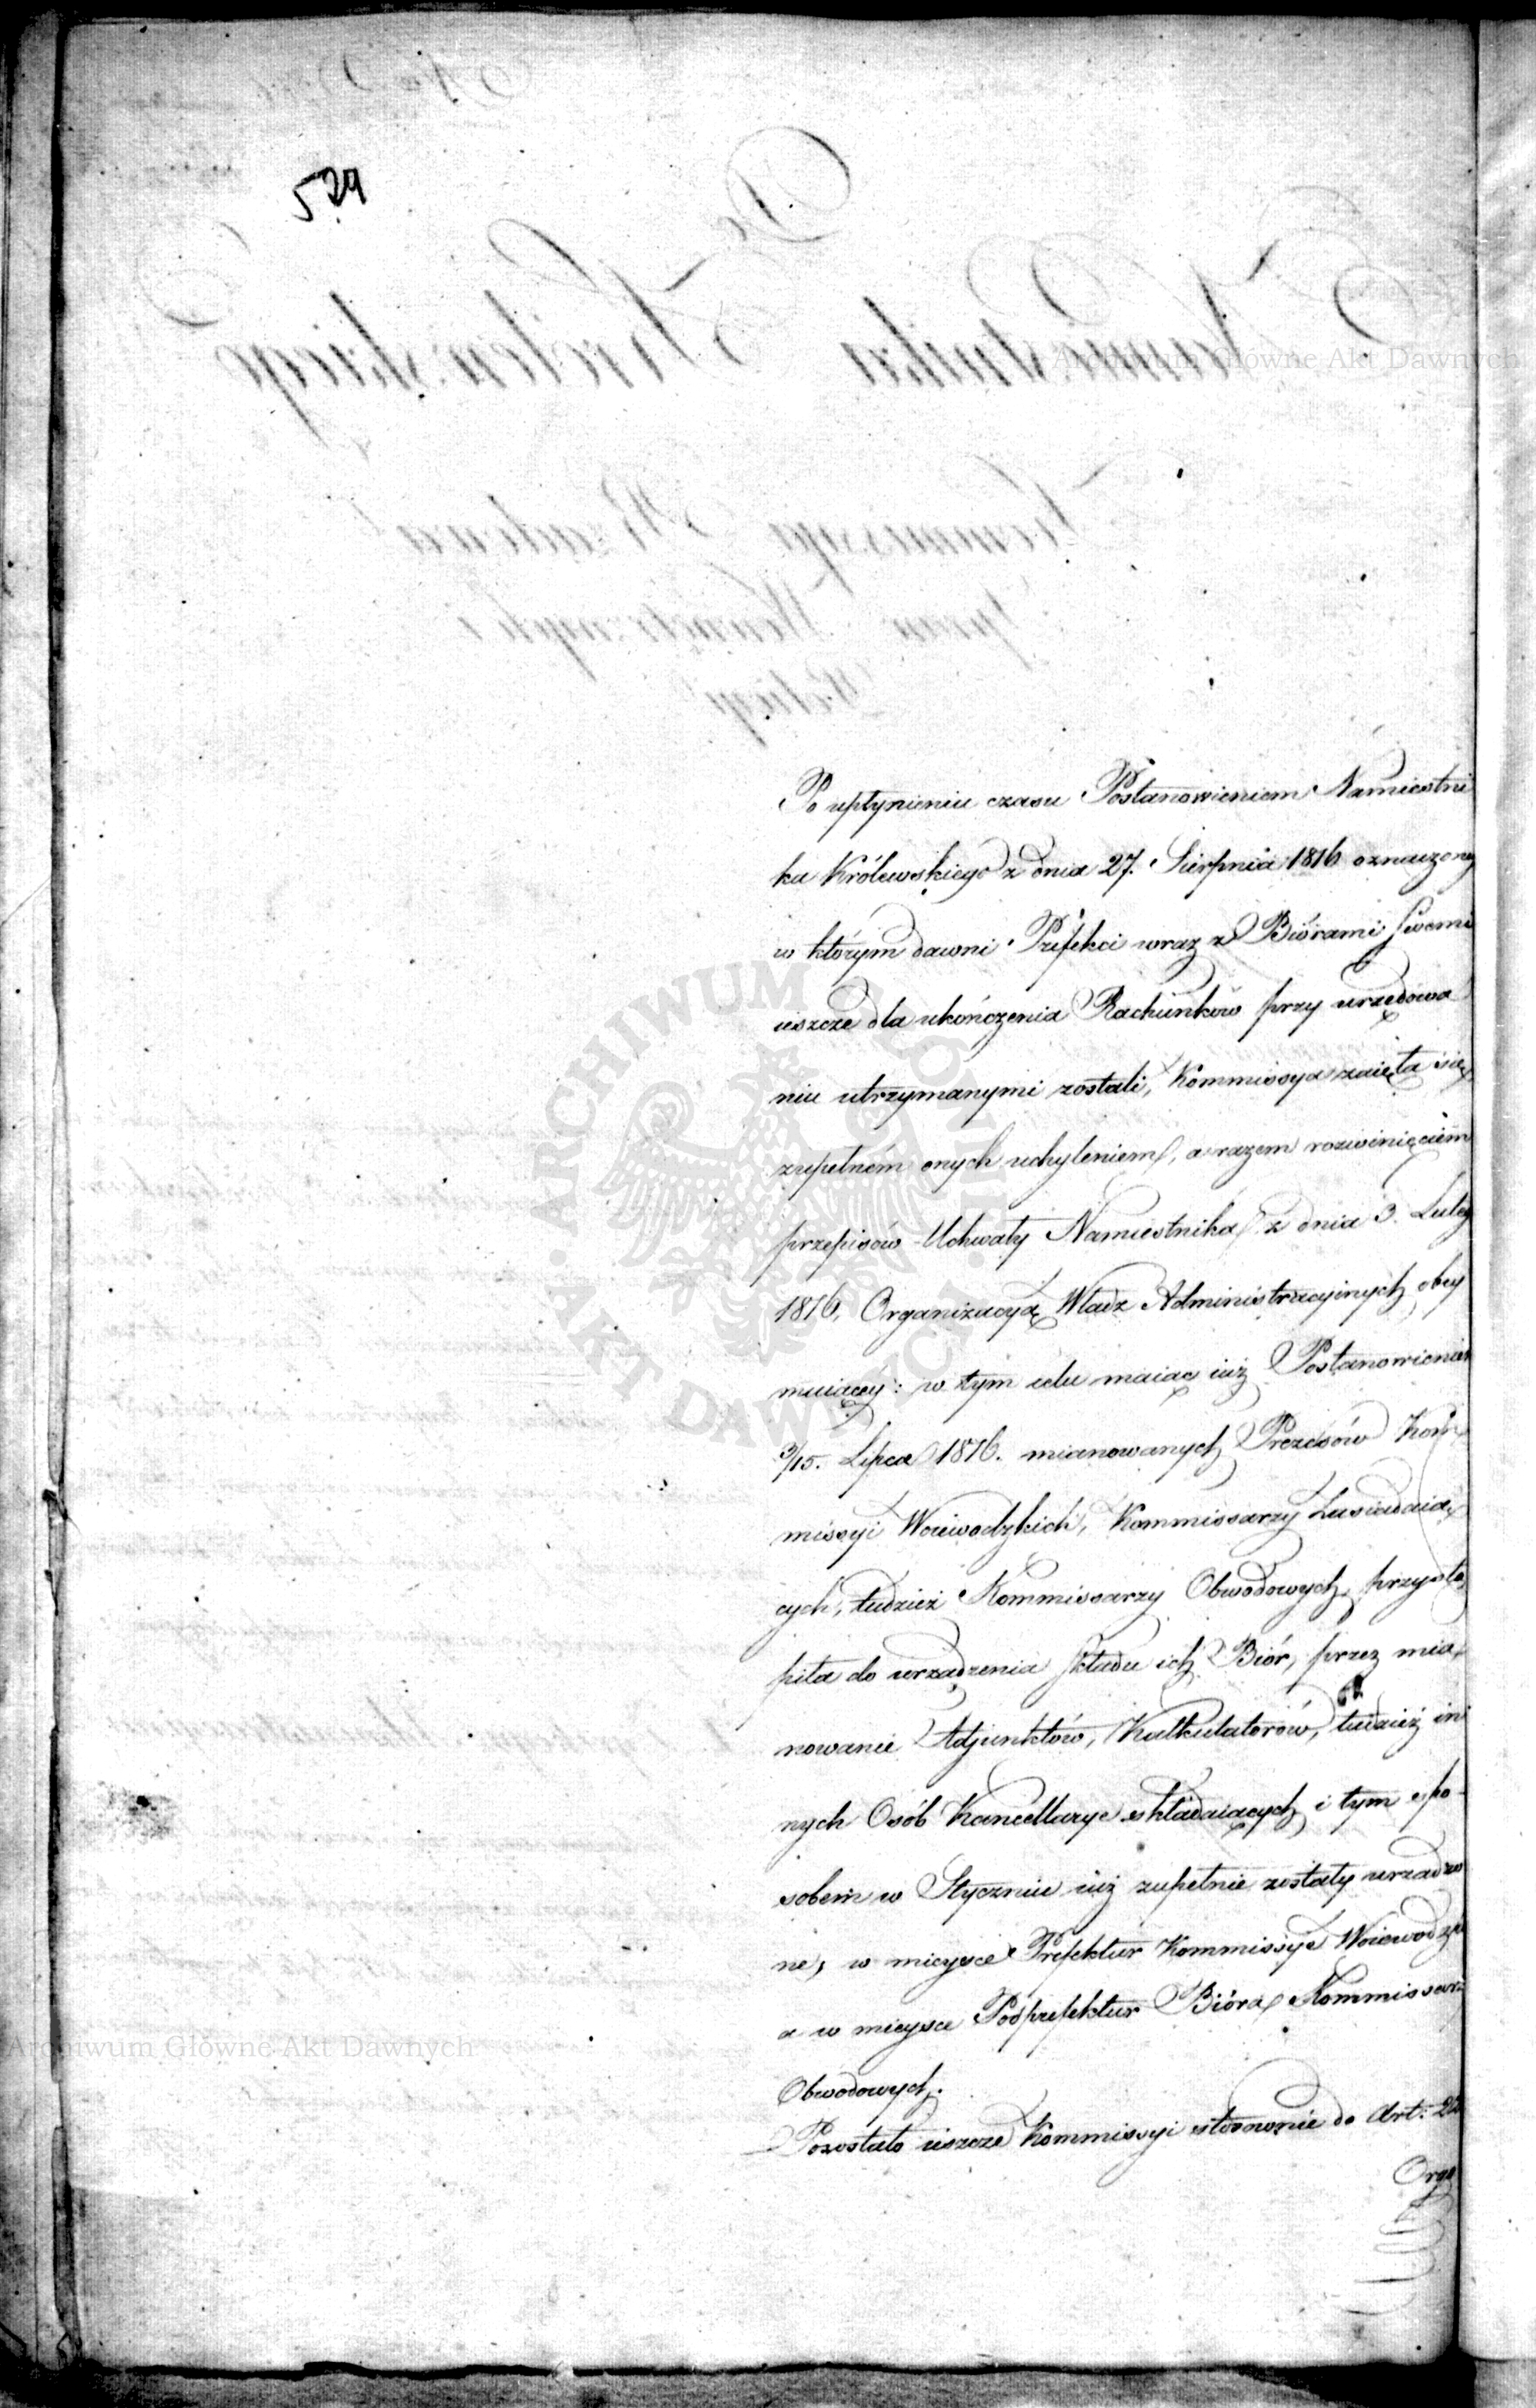 529
Po upłynieniu czasu Postanowieniem Namiestni
ka Królewskiego z dnia 27. Sierpnia 1816 oznaczony
w którym dawni Prefekci wraz z Biórami swemi
ieszcze dla ukończenia Rachunków przy urzędowa
niu utrzymanymi zostali, Kommissya zaięła się
zupełném onych uchyleniem, a razem rozwinięciem
przepisów Uchwały Namiestnika z dnia 3. Luteg
1816, Organizacyą Władz Administracyinych obey
muiącey: w tym celu maiąc iuż Postanowieniem
3/15. Lipca 1816. mianowanych Prezesów Kom
missyi Woiewodzkich, Kommissarzy Zasiadaią
cych, tudzież Kommissarzy Obwodowych, przystą
piła do urządzenia składu ich Biór, przez mia
nowanie Adjunktów, Kalkulatorów, tudzież in
nych Osób Kancellarye składaiących i tym spo-
sobem w Styczniu iuż zupełnie zostały urządzo
ne, w mieysce Prefektur Kommissye Woiewodzk
a w mieysce Podprefektur Bióra Kommissarz
Obwodowych.
Pozostało ieszcze Kommissyi stosownie do Art: 22
Orga
Archiwum Główne Akt Dawnych
Archiwum Główne Akt Dawnych
ARCHIWUM GŁÓWNE AKT DAWNYCH